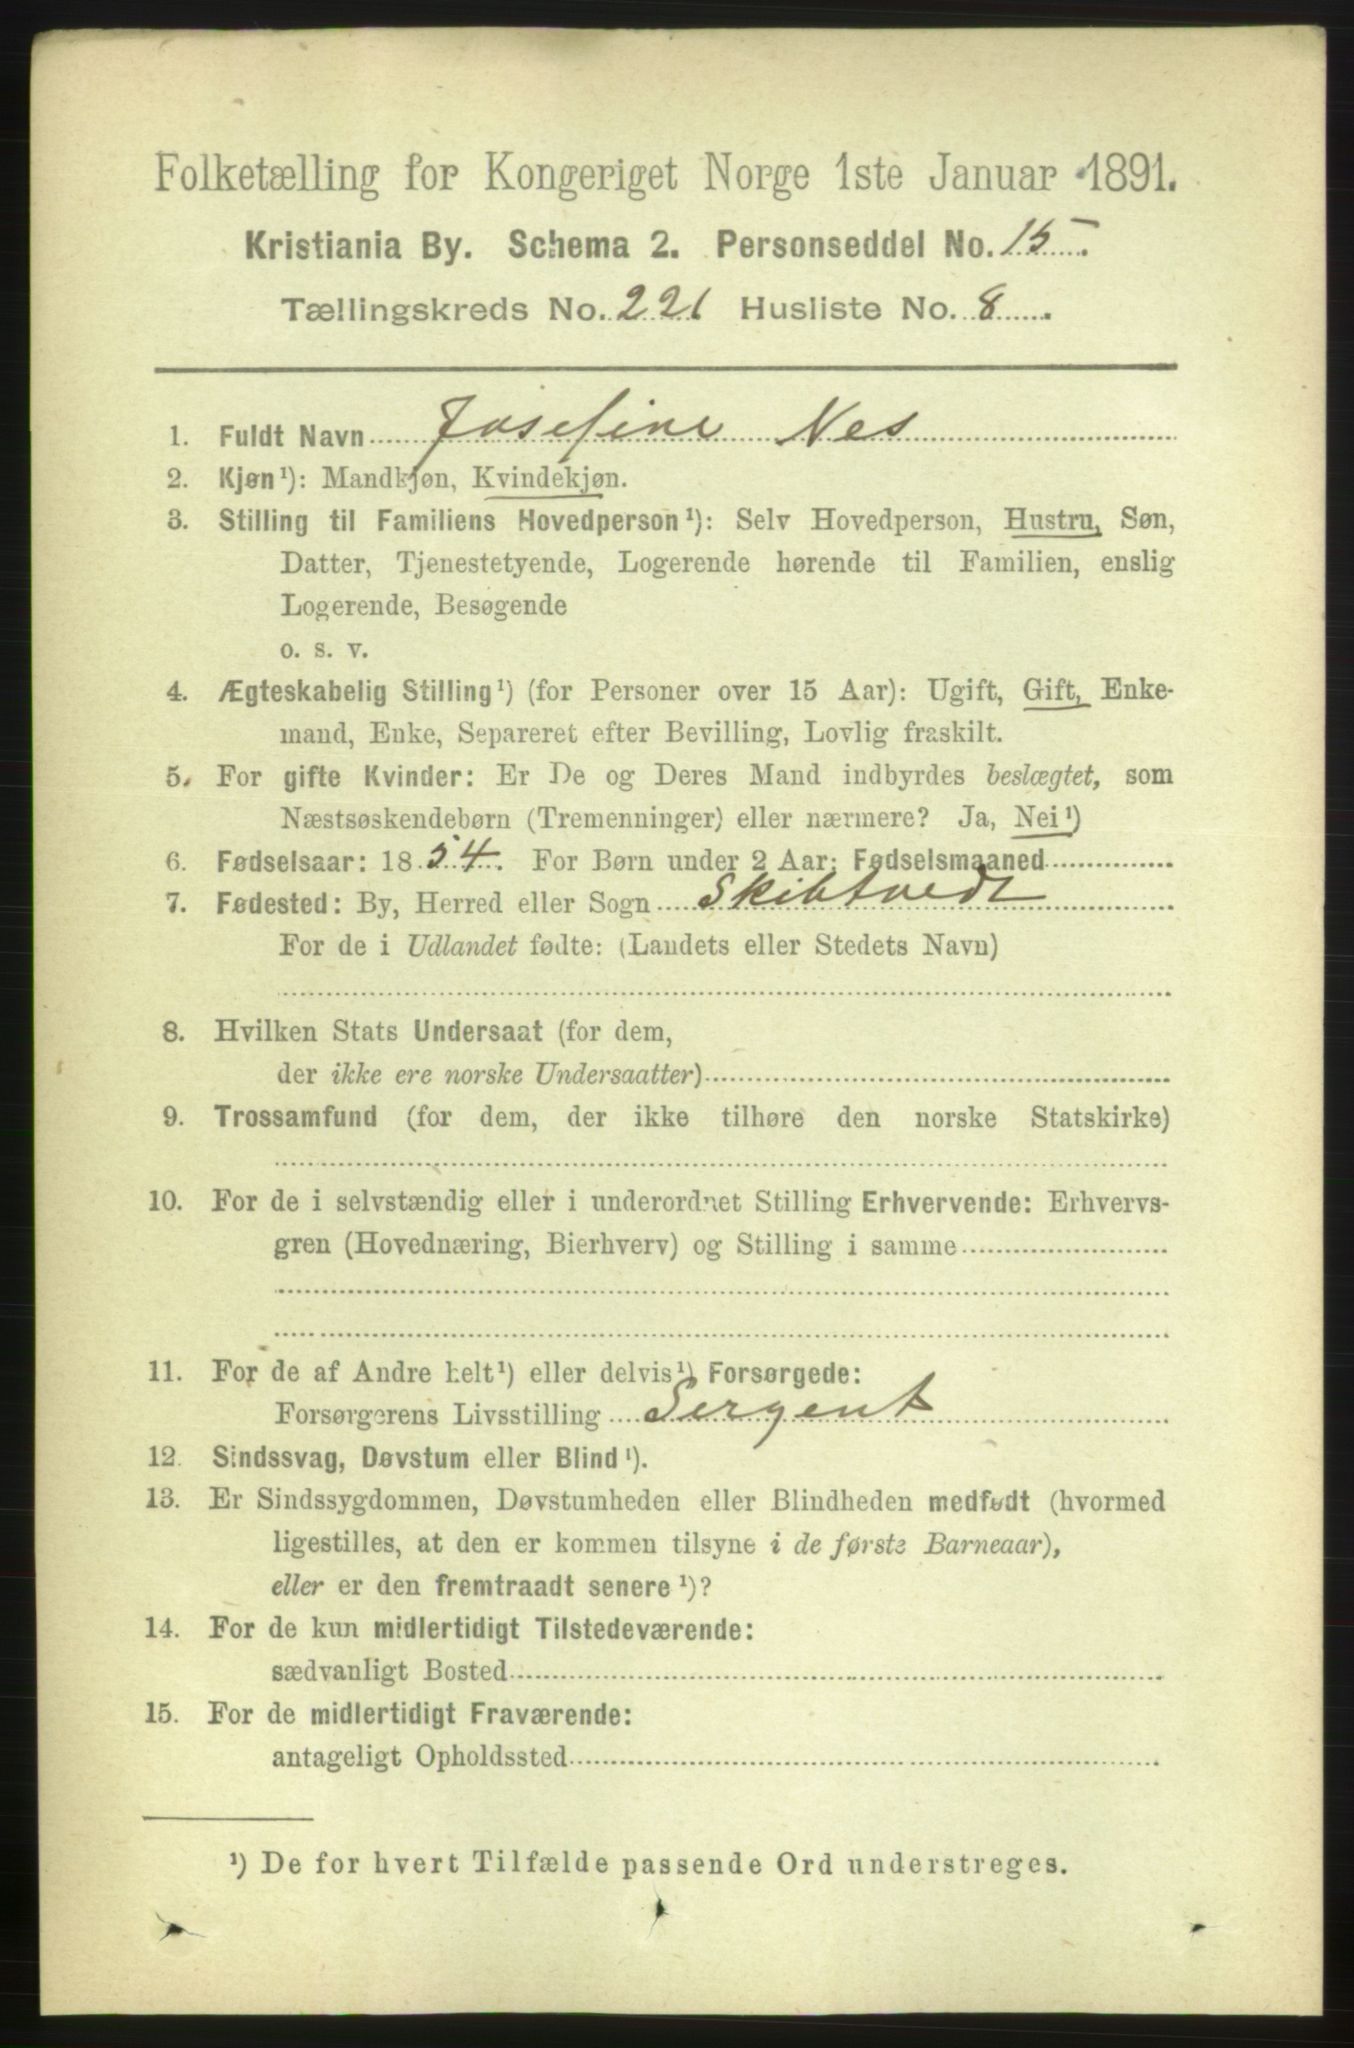 Folketælling for Kongeriget Norge 1ste Januar 1891.
Kristiania By. Schema 2. Personseddel No. 15.
Tællingskreds No. 221 Husliste No. 8.
1. Fuldt Navn Josefine Nes
2. Kjøn¹): Mandkjøn, Kvindekjøn.
3. Stilling til Familiens Hovedperson¹): Selv Hovedperson, Hustru, Søn,
Datter, Tjenestetyende, Logerende hørende til Familien, enslig
Logerende, Besøgende
o. s. v.
4. Ægteskabelig Stilling¹) (for Personer over 15 Aar): Ugift, Gift, Enke-
mand, Enke, Separeret efter Bevilling, Lovlig fraskilt.
5. For gifte Kvinder: Er De og Deres Mand indbyrdes beslægtet, som
Næstsøskendebørn (Tremenninger) eller nærmere? Ja, Nei¹)
6. Fødselsaar: 1854. For Børn under 2 Aar: Fødselsmaaned
7. Fødested: By, Herred eller Sogn Skibtvedt
For de i Udlandet fødte: (Landets eller Stedets Navn)
8. Hvilken Stats Undersaat (for dem,
der ikke ere norske Undersaatter)
9. Trossamfund (for dem, der ikke tilhøre den norske Statskirke)
10. For de i selvstændig eller i underordnet Stilling Erhvervende: Erhvervs-
gren (Hovednæring, Bierhverv) og Stilling i samme
11. For de af Andre helt¹) eller delvis¹) Forsørgede:
Forsørgerens Livsstilling Sergent
12. Sindssvag, Døvstum eller Blind¹).
13. Er Sindssygdommen, Døvstumheden eller Blindheden medfødt (hvormed
ligestilles, at den er kommen tilsyne i de første Barneaar),
eller er den fremtraadt senere¹)?
14. For de kun midlertidigt Tilstedeværende:
sædvanligt Bosted
15. For de midlertidigt Fraværende:
antageligt Opholdssted
¹) De for hvert Tilfælde passende Ord understreges.